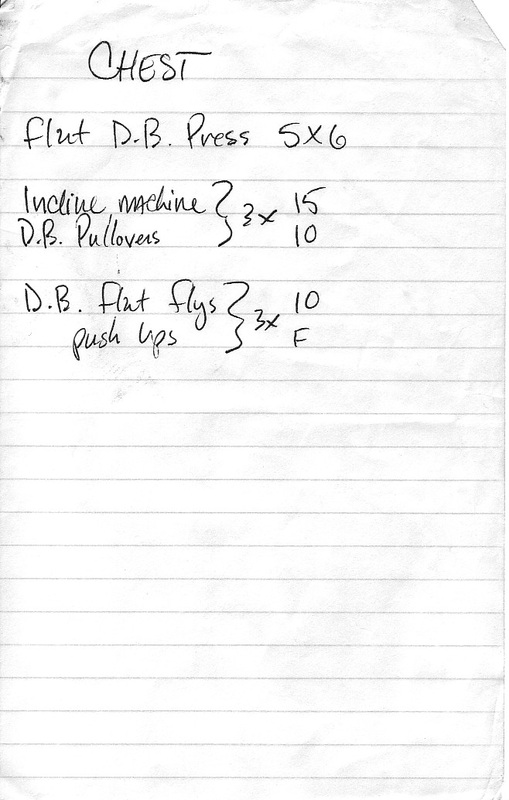 CHEST
Flat D.B. Press 5x6
Incline machine } 3x 15
D.B. Pullovers 10
D.B. flat flys } 3x 10
push ups F